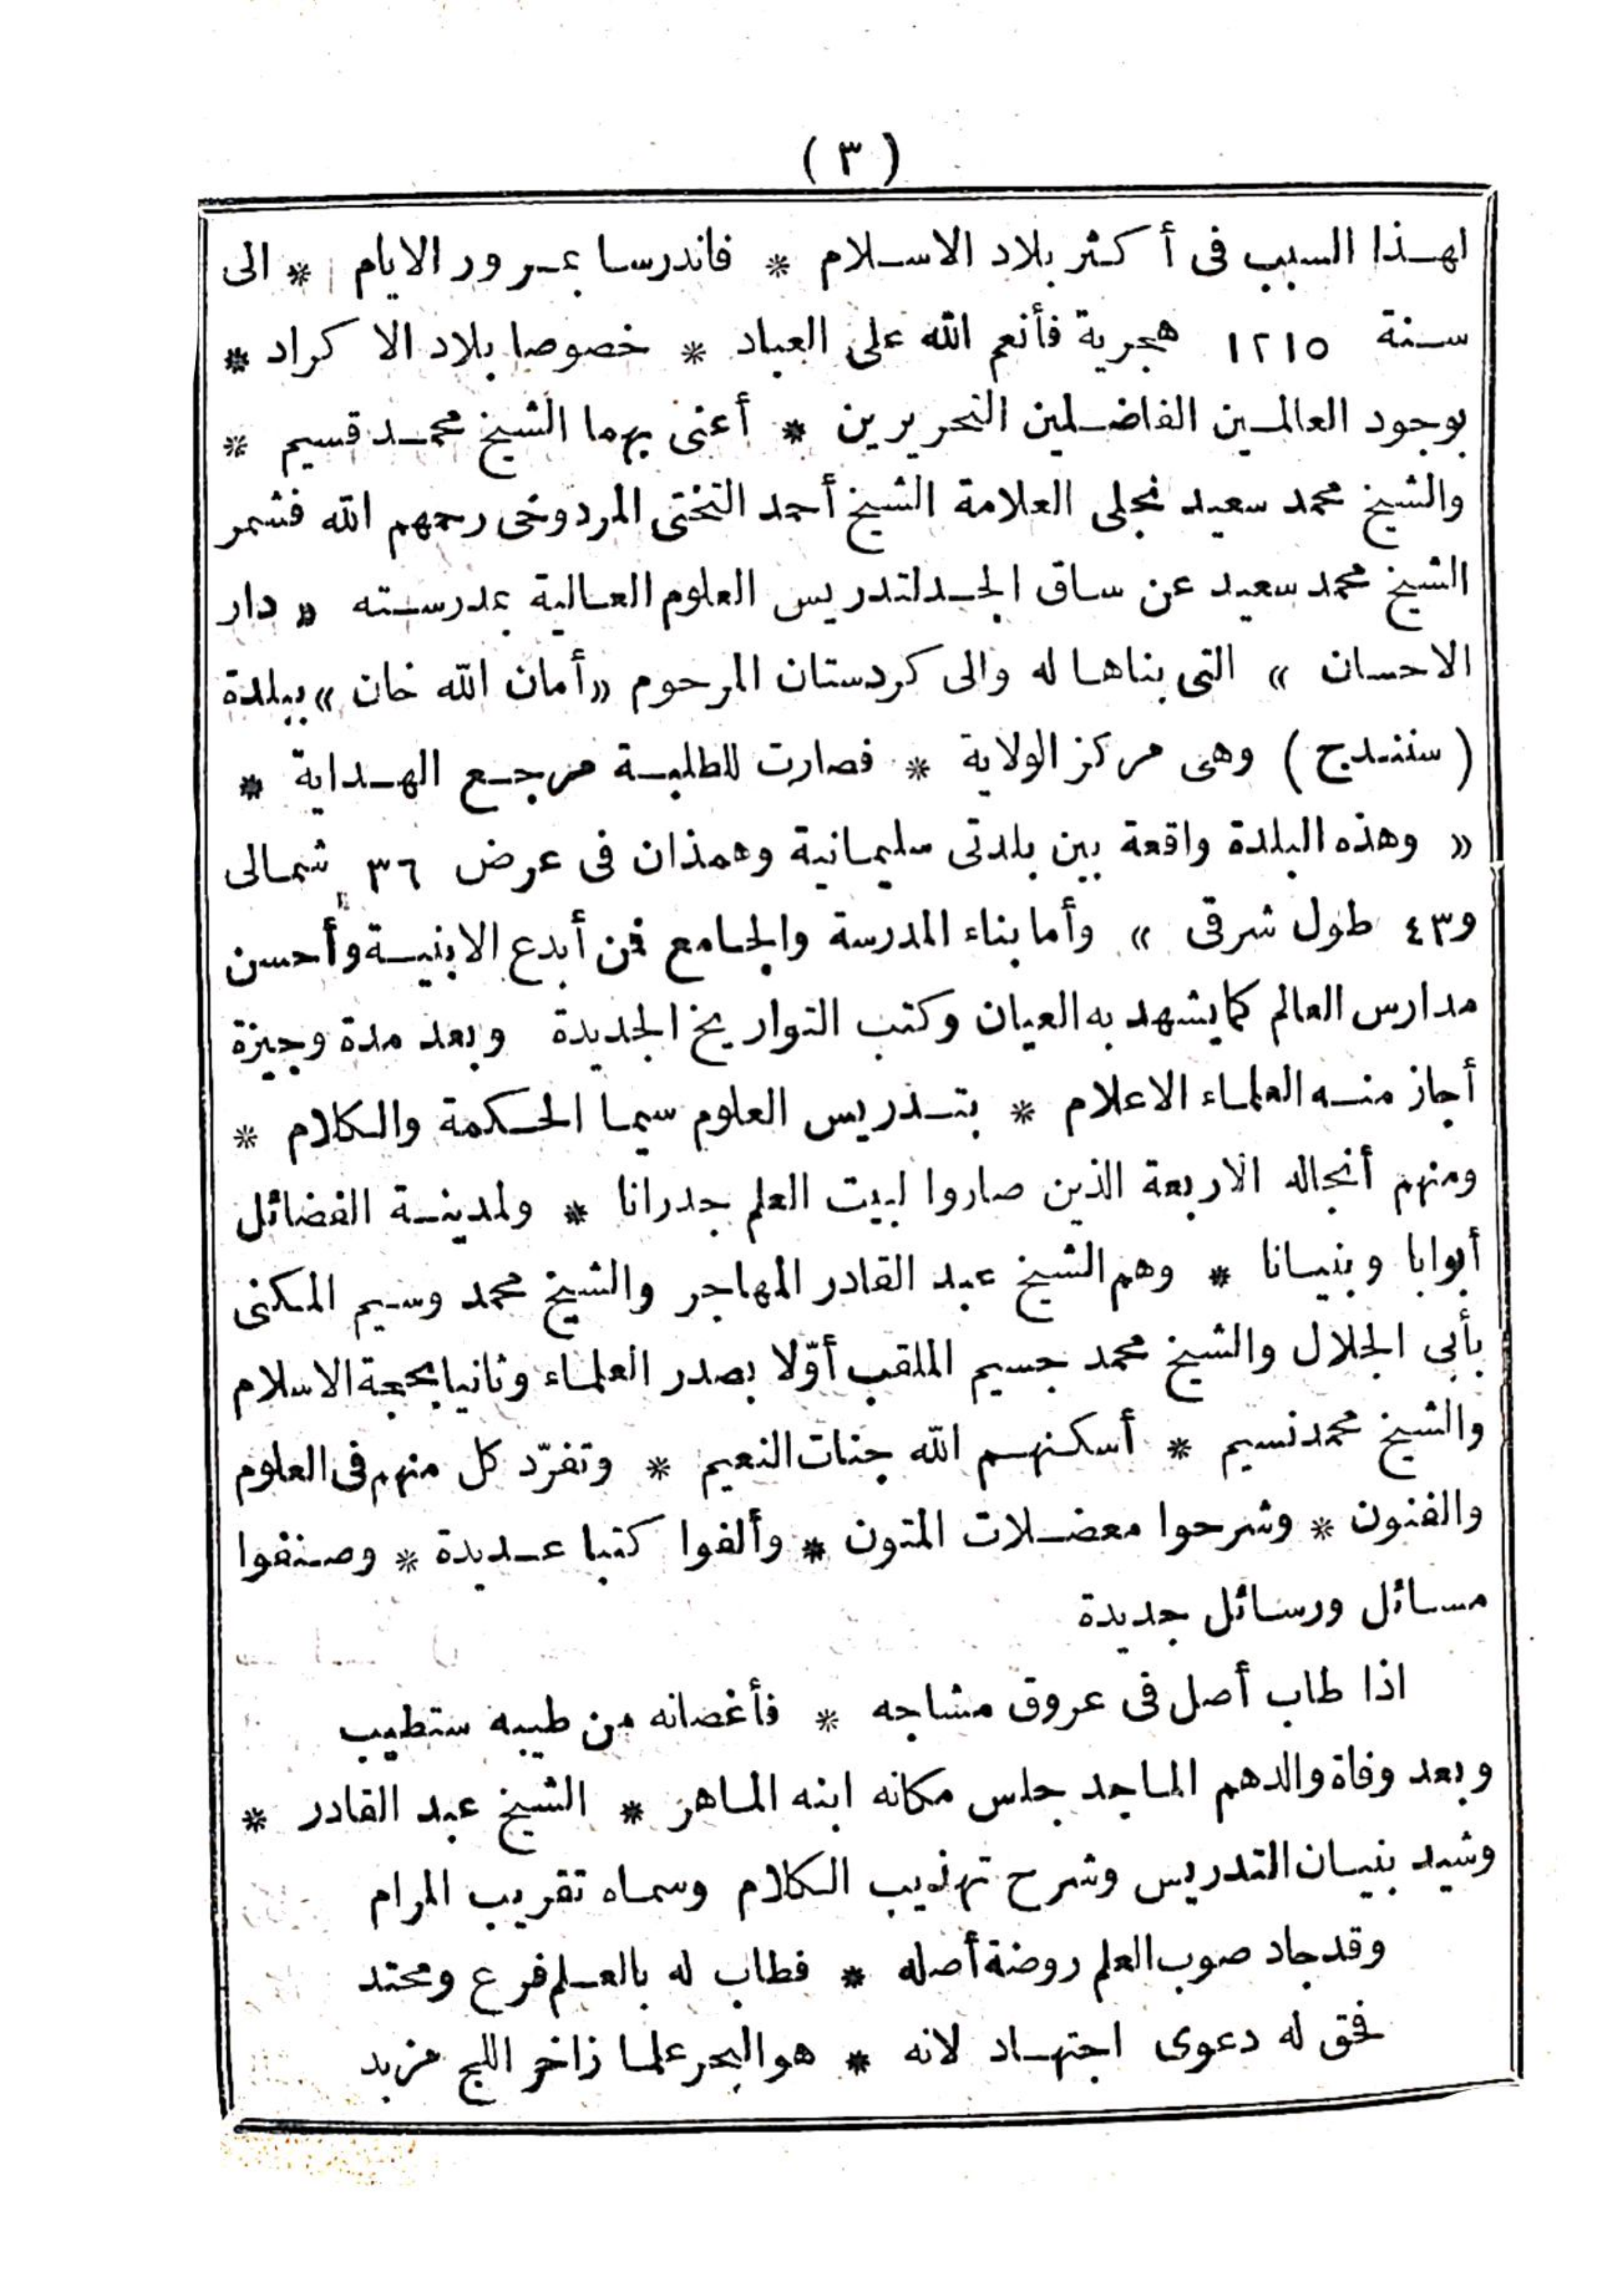 ( ٣ )
لهذا السبب فى أكثر بلاد الاسلام * فاندرسا بمرور الايام * الى
سنة ١٢١٥ هجرية فأنعم الله على العباد * خصوصا بلاد الاكراد *
بوجود العالمين الفاضلين النحريرين * أعنى بهما الشيخ محمد قسيم *
والشيخ محمد سعيد نجلى العلامة الشيخ أحمد التختى المردوخى رحمهم الله فشمر
الشيخ محمد سعيد عن ساق الجد لتدريس العلوم العالية بمدرسته « دار
الاحسان » التى بناها له والى كردستان المرحوم « أمان الله خان » ببلدة
( سنندج ) وهى مركز الولاية * فصارت للطلبة مرجع الهداية *
« وهذه البلدة واقعة بين بلدتى سليمانية وهمذان فى عرض ٣٦ شمالى
و٤٣ طول شرقى » وأما بناء المدرسة والجامع فمن أبدع الابنية وأحسن
مدارس العالم كما يشهد به العيان وكتب التواريخ الجديدة وبعد مدة وجيزة
أجاز منه العلماء الاعلام * بتدريس العلوم سيما الحكمة والكلام *
ومنهم أنجاله الاربعة الذين صاروا لبيت العلم جدرانا * ولمدينة الفضائل
أبوابا وبنيانا * وهم الشيخ عبد القادر المهاجر والشيخ محمد وسيم المكنى
بأبى الجلال والشيخ محمد جسيم الملقب أوّلا بصدر العلماء وثانيا بحجة الاسلام
والشيخ محمد نسيم * أسكنهم الله جنات النعيم * وتفرّد كل منهم فى العلوم
والفنون * وشرحوا معضلات المتون * وألفوا كتبا عديدة * وصنفوا
مسائل ورسائل جديدة
اذا طاب أصل فى عروق مشاجه * فأغصانه من طيبه ستطيب
وبعد وفاة والدهم الماجد جلس مكانه ابنه الماهر * الشيخ عبد القادر *
وشيد بنيان التدريس وشرح تهذيب الكلام وسماه تقريب المرام
وقد جاد صوب العلم روضة أصله * فطاب له بالعلم فرع ومحتد
فحق له دعوى اجتهاد لانه * هو البحر علما زاخر اللج مزبد